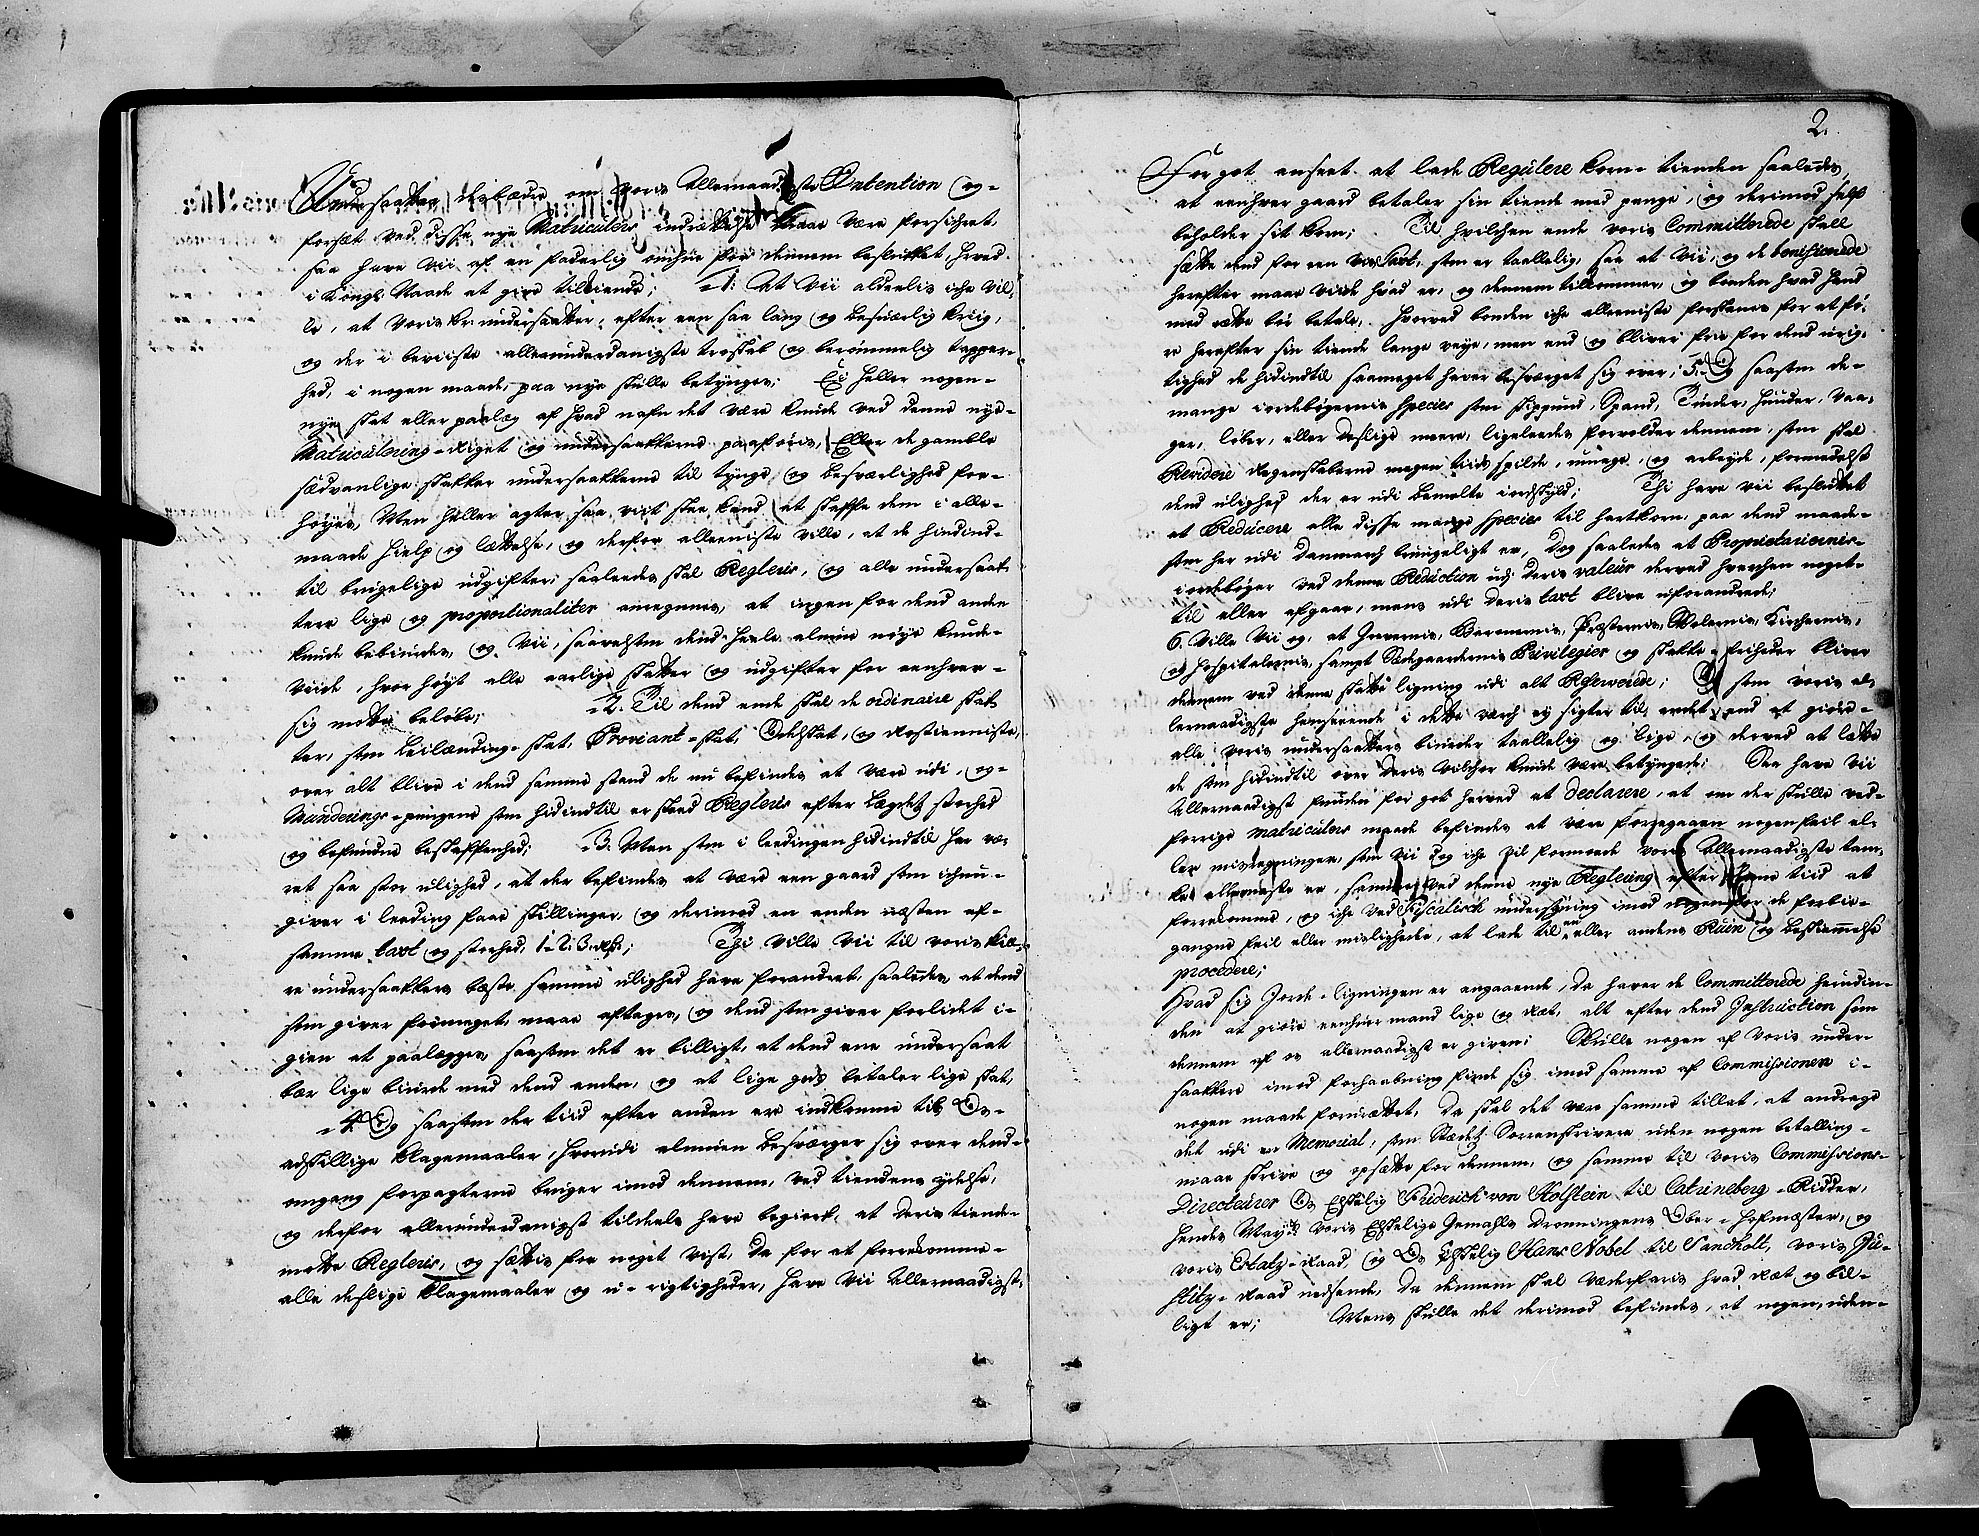 Undersaatter desbædre om voris Allernaadigste Intention og-
forsæt ved disse nye Matriculers indrættelse kunde være forsichret,
saa have Vii af en faderlig omhue for dennem besluttet, hved
i Kongl: Naade at give tilkiende; 1. At Vii aldeelis iche vil,
le, at Voris kr: undersaatter, efter een saa lang og besværlig kriig,
og der i beviiste allerunderdanigste troskab og berømmelig tapper-
hed, i nogen maade, paa nye skulle betynges; Ey heller nogen-
nye skat eller paalæg af hvad nafn det være kunde ved denne nye-
Matriculering-Riget og undersaatterne paaføris, Eller de gamble
sædvanlige skatter undersaatterne til tynge og besværlighed for-
høyes, Men heller agter saa vit skee kand at skaffe dem i alle-
maade hielp og lættelse, og derfor alleeniste ville, at de hindind-
til brugelige udgifter, saaleedes skal Regleris, og alle undersaat-
tere lige og proportionaliter anregnes, at ingen for dend anden
kunde bebyrdes, og Vii, saavelsom dend heele almue nøye kunde-
viide, hvor høyt alle aarlige skatter og udgifter for eenhver-
sig motte beløbe; 2. Til dend ende skal de ordinaire skat
ter, som Leilænding-skat, Proviant-skat, Odelskat, og Rostienniste,
over alt blive i dend samme stand de nu befindes at være udi, og-
Munderings-pengene som hidindtil er skeed Regleris efter Lægdets storhed
og befundne beskaffenhed; 3. Men som i leedingen hidindtil har væ-
ret saa stor ulighed, at der befindes at være een gaard som ichun-
giver i leeding faae skillinger, og derimod en anden næsten af-
samme taxt og storhed, 1. 2. 3. rdr; Thi ville Vii til voris kiæ-
re undersaatters bæste samme ulighed have forandret, saaledes, at dend
som giver formeget, maae aftages, og dend som giver forlidet i-
gien at paalægges, saasom det er billigt, at dend eene undersaat
bær lige byrde med dend anden, og at lige gods betaler lige skat,
4. Og saasom der tiid efter anden ere indkomne til Os-
adskillige Klagemaaler, hvorudi almuen besværger sig over dend-
omgang forpagterne bruger imod dennem, ved tiendens ydelse,
og derfor allerunderdanigst tildeels have begiert, at deris tiende-
motte Regleris, og sættis for noget vist, Da for at forrekomme-
alle deslige Klagemaaler og u-rigtigheder, have Vii Allernaadigst
2.
For got anseet at lade Regulere korn-tienden saaledes,
at eenhver gaard betaler sin tiende med penge, og derimod self
beholder sit korn; Til hvilchen ende voris Committerede skall
sætte dend for een vis Taxt, som er taallelig, saa at Vii, og de benificerede
herefter maae viide hvad er, og dennem tilkommer, og bonden hvad hand
med rætte bør betale, Hvorved bonden iche alleeniste forskaanis for at fø-
re herefter sin tiende lange veye, men end og bliver frii for dend urig-
tighed de hidindtil saameget haver besværget sig over; 5. Og saasom de-
mange iordebøgernis Species som skippund, Spand, Tunder, Huuder, Vaa-
ger, løber, eller deslige meere, ligeleedes forvolder dennem, som skal
Revidere Regenskaberne megen tiids spilde, umage, og arbeyde, formedelst
dend ulighed der er udi bemelte iordskyld; Thi have vii besluttet
at Reducere alle disse mange Species til hartkorn, paa dend maade-
som her udi Danmarch brugeligt er, dog saaledes at Proprietariernis-
iordebøger ved denne Reduction udi deris valeur derved hverchen noget-
til eller afgaar, mens udi deris taxt blive uforandrede;
6. Ville Vii og, at Grevernis, Baronernis, Præsternis, Skolernis, Kirchernis,
og Hospitalernis, sampt Sædegaardernis Privilegier og skatte-friheder bliver
dennem ved denne skatte ligning udi alt Reserverede; Og som voris al-
lernaadigste henseende i dette værch ey sigter til andet, end at giøre-
alle voris undersaatters byrder taallelig og lige, og derved at lætte
de som hidindtil over deris vilchor kunde være betyngede; Saa have Vii
Allernaadigst funden for got herved at declarere, at om der skulle ved-
forrige matriculers maade befindes at være forregaaen nogen feil el-
ler misregninger, som Vii dog iche vil formoede voris Allernaadigste tan-
ke alleeneste er, samme ved denne nye Reglering efter denne tiid at
forrekomme, og iche ved Fiscalisch undersøgning imod nogen for de forbi-
gangne feil eller misligheder, at lade til een eller andens Ruin og beskemmelse
procedere;
Hvad sig Jorde-ligningen er angaaende, da haver de Committerede herudin-
den at giøre eenhver mand lige og Ræt, alt efter dend Instruction som
dennem af os allernaadigst er given; Skulle nogen af Voris under-
saattere imod forhaabning finde sig imod samme af Commissionen i-
nogen maade forurættet, da skal det være samme tillat, at andrage
det udi en Memorial, som Stædets Sorrenskrivere uden nogen betalling-
maae skrive og opsætte for dennem, og samme til Voris Commissions-
Directeurer Os Elskelig Friderich von Holstein til Catrineberg-Ridder,
Hendes Mayts: Voris Elskelige Gemahls Dronningens Ober-Hofmæster, og
voris Etatz-Raad, og Os Elskelig Hans Nobel til Sandholt, voris Ju-
stitz-Raad nedsende, da dennem skal vederfaris hvad Ræt og bil-
ligt er; Mens skulle det derimod befindes, at nogen, uden-